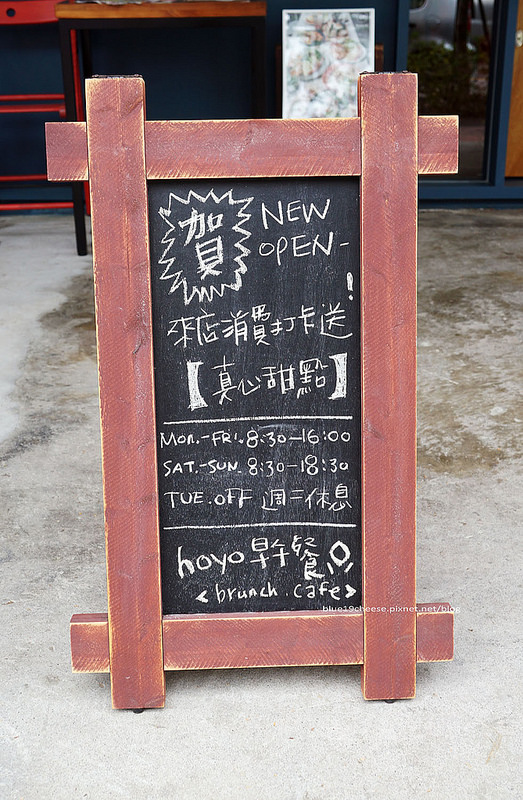 賀 NEW
OPEN-!
來店消費打卡送
【真心甜點】
Mon.-FRI. 8:30-16:00
SAT.-SUN. 8:30-18:30
TUE.OFF 週二休息
hoyo 早午餐
<brunch.cafe>
blue19cheese.pixnet.net/blog